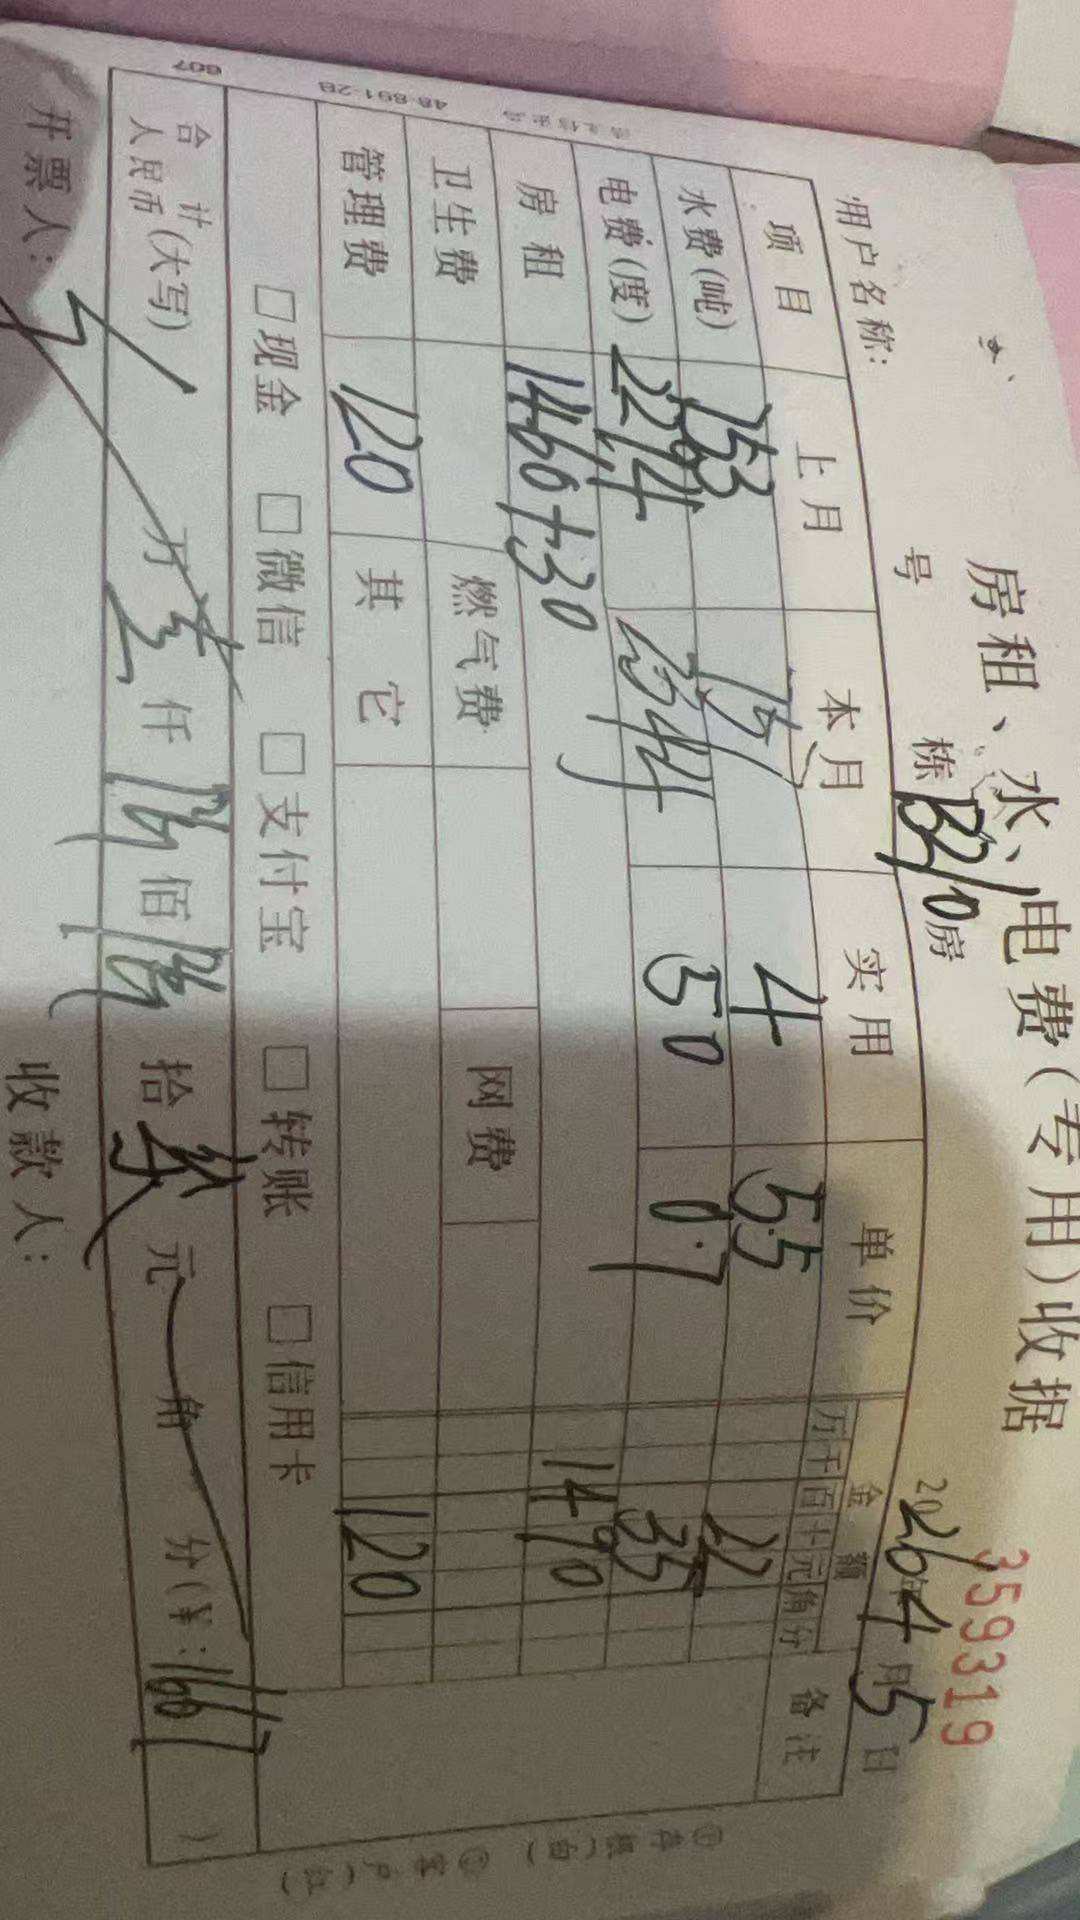 房租、水、电费(专用)收据
359319
用户名称: 号 栋 B210房 2026年4月5日
项目 上月 本月 实用 单价 金额 备注
万千百十元角分
水费(吨) 153 157 4 5.5 22
电费(度) 2294 2344 50 0.7 35
房租 1460+30 1490
卫生费 燃气费 网费
管理费 120 其它 120
□现金 □微信 □支付宝 □转账 □信用卡
合计人民币(大写) 万 壹仟 陆佰 陆拾 柒元 角 分(¥:1667)
开票人: 收款人:
①存根(白) ②客户(红)
48-891-2B
607